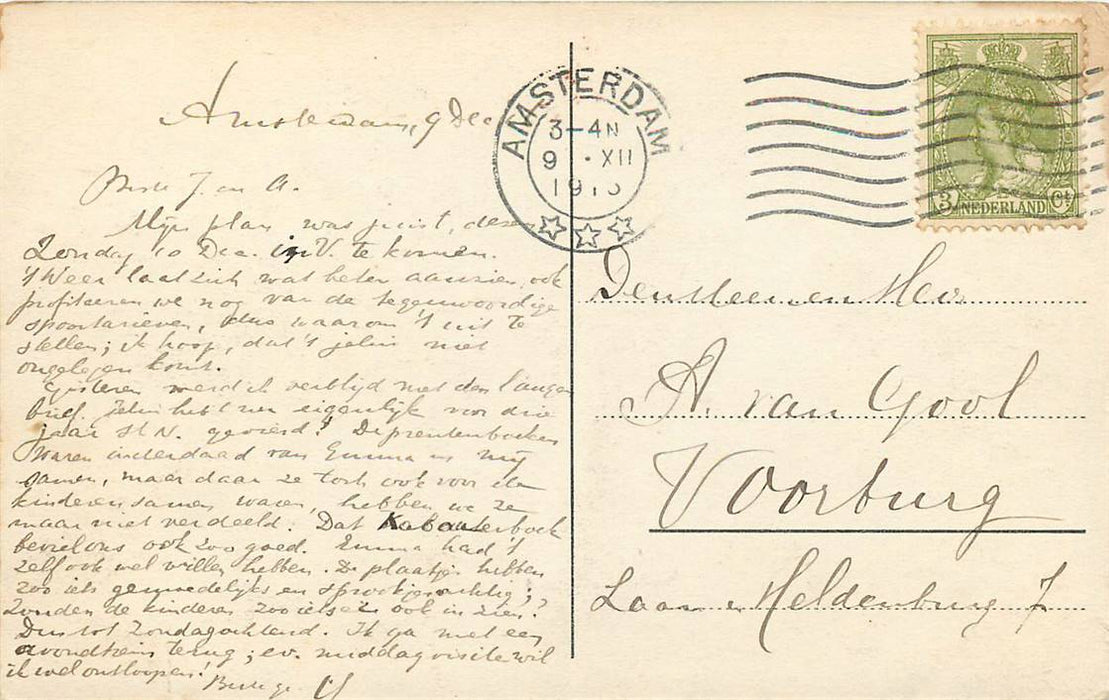 Amsterdam, 9 Dec
Beste J. en A.
Mijn plan was juist, deze
Zondag 10 Dec. in V. te komen.
't Weer laat zich wat beter aanzien, ook
profiteeren we nog van de tegenwoordige
spoortarieven, dus waarom 't uit te
stellen; ik hoop, dat 't jelui niet
ongelegen komt.
Gisteren werd ik verblijd met den langen
brief. Jelui hebt nu eigenlijk voor drie
jaar St N. gevierd! De prentenboeken
waren inderdaad van Emma en mij
samen, maar daar ze toch ook voor de
kinderen samen waren, hebben we ze
maar niet verdeeld. Dat Kabouterboek
beviel ons ook zoo goed. Emma had 't
zelf ook wel willen hebben. De plaatjes hebben
zoo iets gemoedelijks en sprookjesachtig;
zouden de kinderen zoo iets er ook in zien?
Dus tot Zondagochtend. Ik ga met een
avondtrein terug; ev. middagvisite wil
ik wel ontloopen!
AMSTERDAM
3-4N
9 · XII
NEDERLAND
3 Ct
Den Heer
A. van Gool
Voorburg
Laan v Heldenburg 7